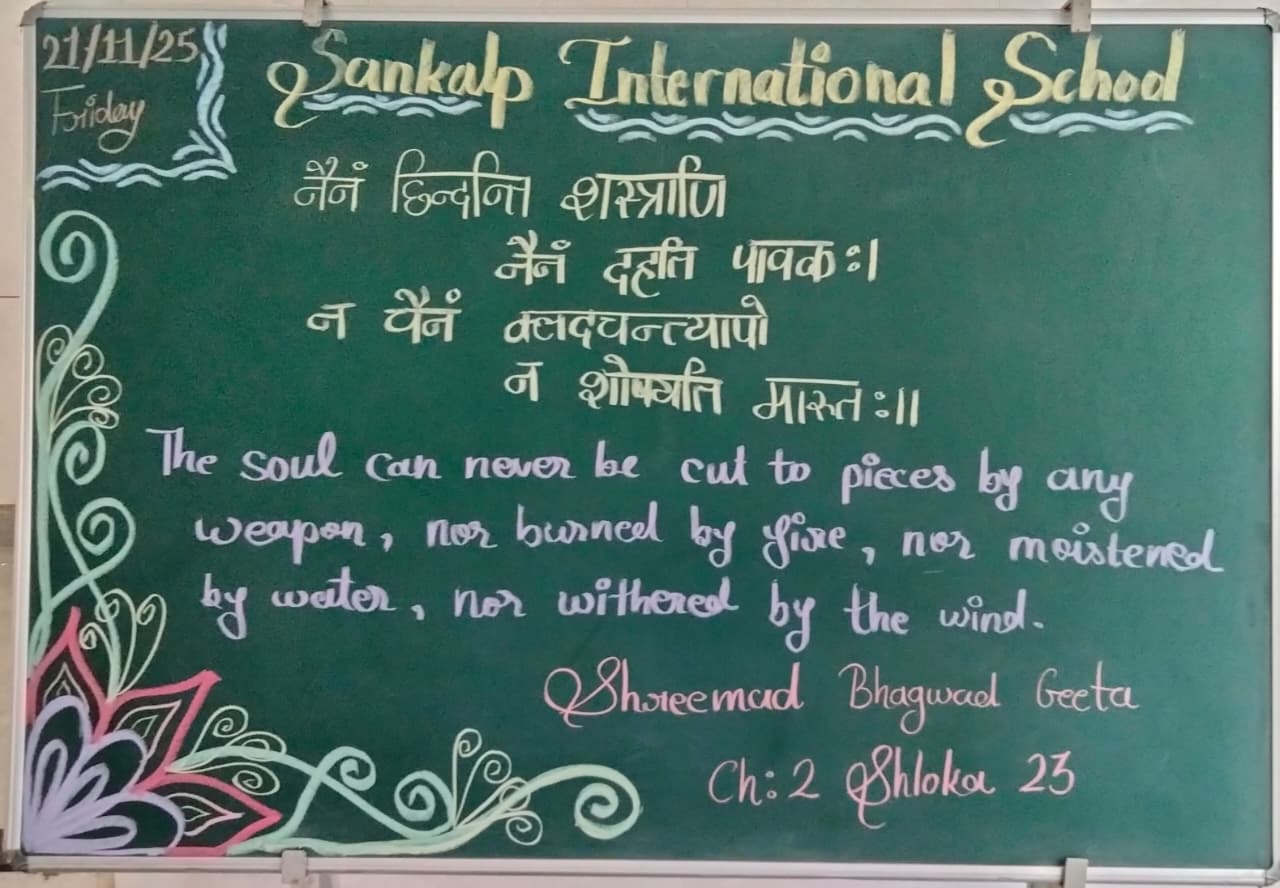 21/11/25
Friday
Sankalp International School
नैनं छिन्दन्ति शस्त्राणि
नैनं दहति पावकः।
न चैनं क्लदचन्त्यापो
न शोषयति मारुतः॥
The soul can never be cut to pieces by any
weapon, nor burned by fire, nor moistened
by water, nor withered by the wind.
Shreemad Bhagwad Geeta
Ch:2 Shloka 23